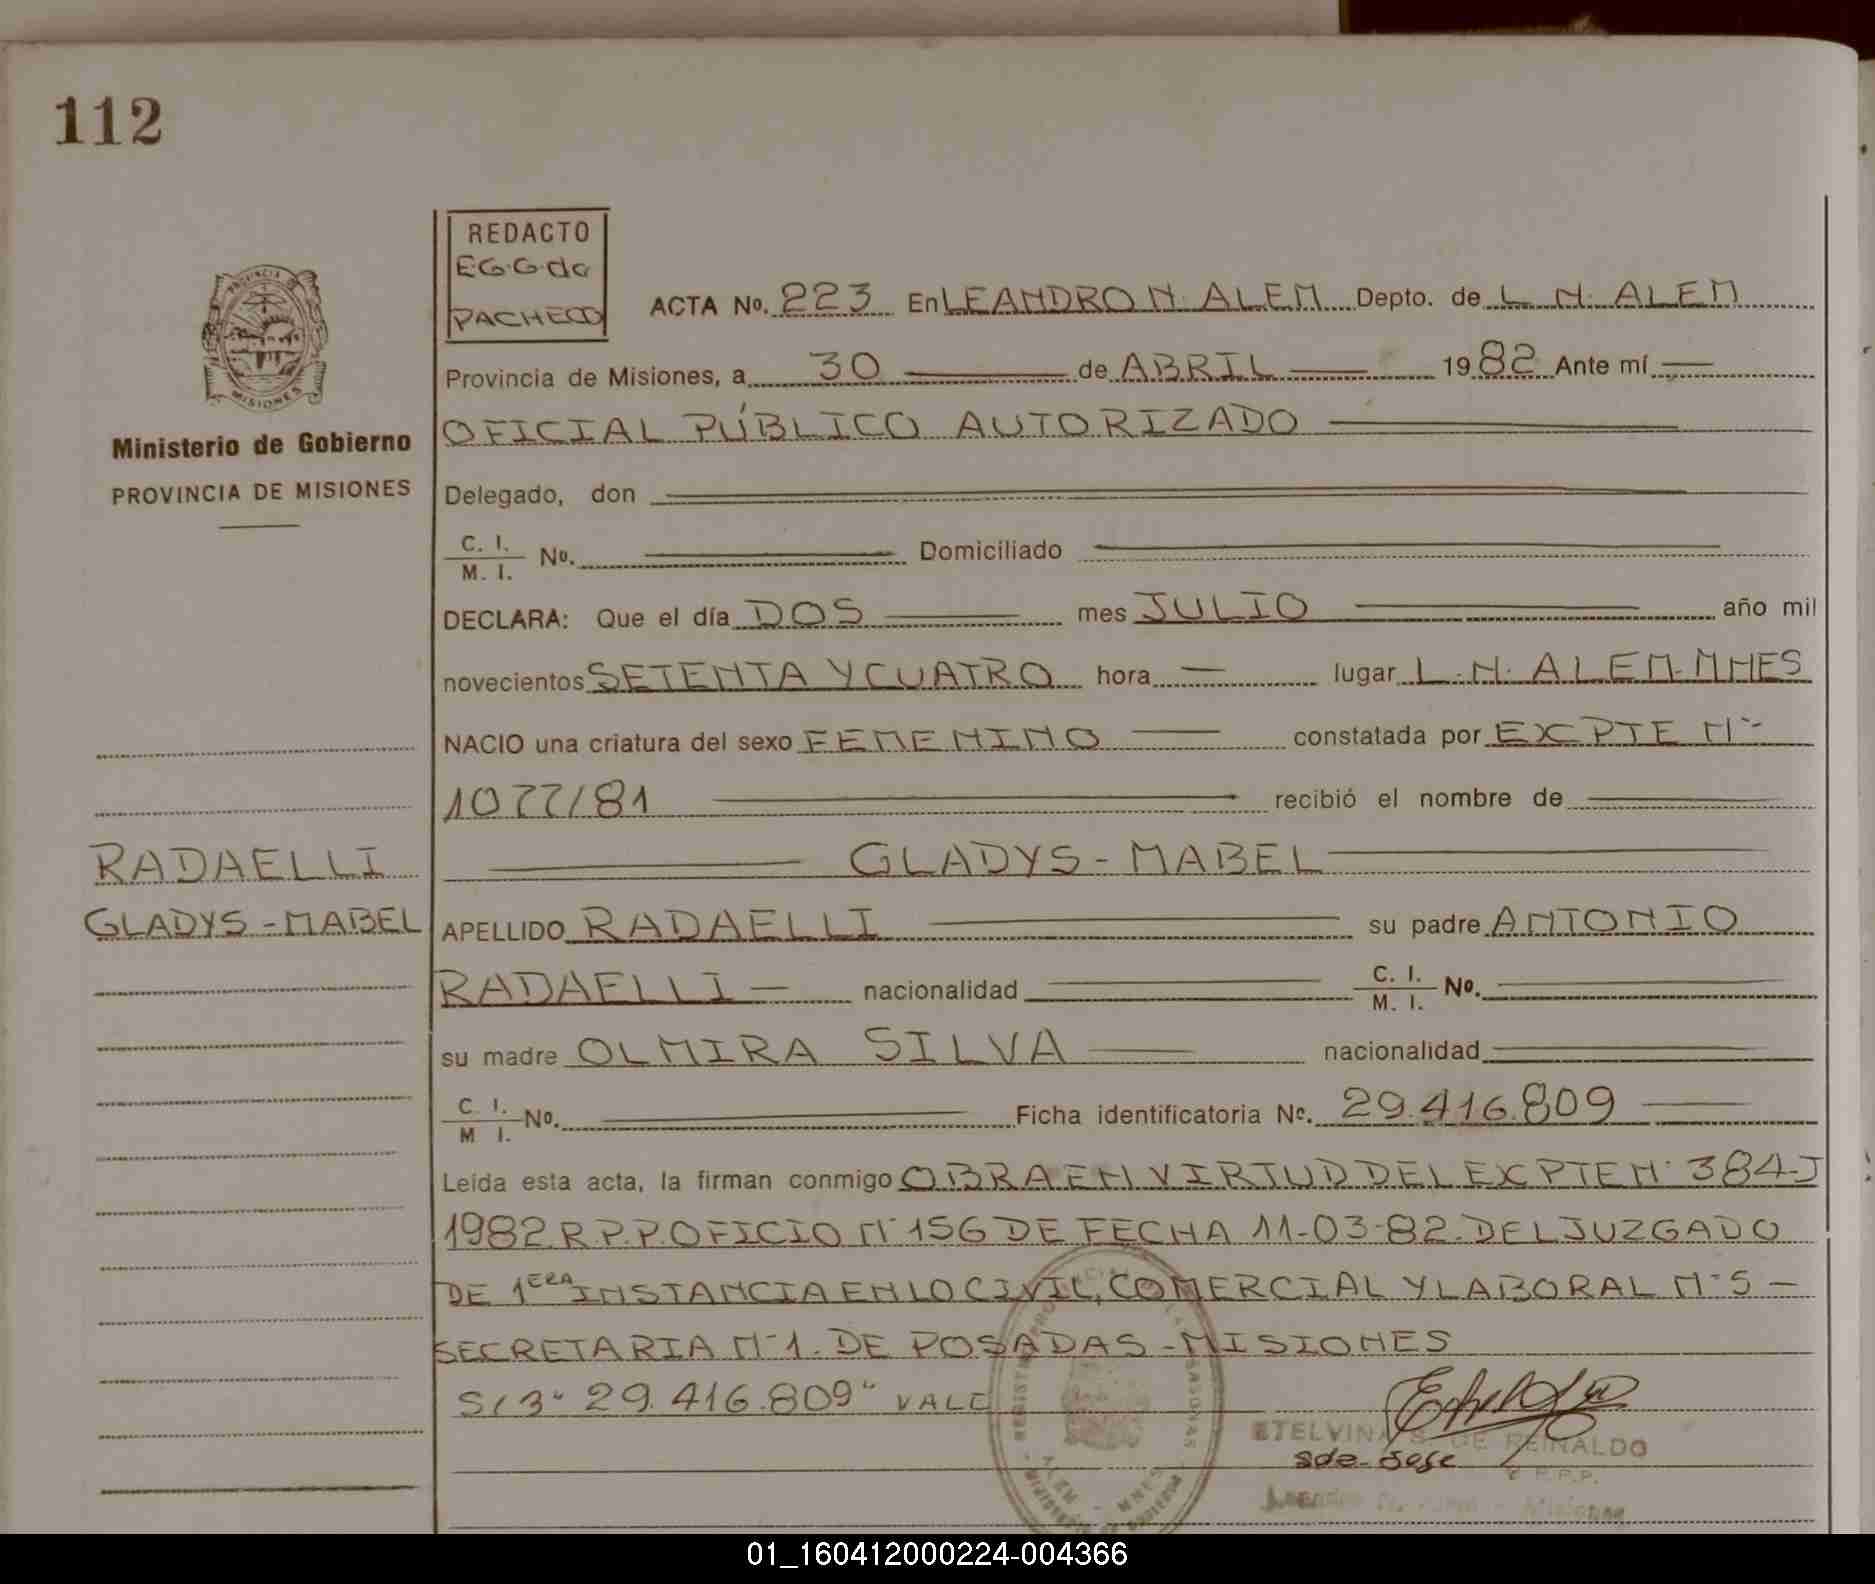 112
REDACTO
E.G.G. de
PACHECO
ACTA No. 223 En LEANDRO N. ALEM Depto. de L. N. ALEM
PROVINCIA DE
MISIONES
Provincia de Misiones, a 30 de ABRIL 1982 Ante mí
OFICIAL PÚBLICO AUTORIZADO
Ministerio de Gobierno
PROVINCIA DE MISIONES
Delegado, don
C. I.
M. I. No. Domiciliado
DECLARA: Que el día DOS mes JULIO año mil
novecientos SETENTA Y CUATRO hora lugar L. N. ALEM-MNES
NACIO una criatura del sexo FEMENINO constatada por EXPTE Nº
1077/81 recibió el nombre de
GLADYS - MABEL
RADAELLI
GLADYS - MABEL
APELLIDO RADAELLI su padre ANTONIO
RADAELLI nacionalidad C. I.
M. I. No.
su madre OLMIRA SILVA nacionalidad
C. I.
M I. No. Ficha identificatoria No. 29.416.809
Leída esta acta, la firman conmigo OBRA EN VIRTUD DEL EXPTE Nº 384-J
1982 R.P.P. OFICIO Nº 156 DE FECHA 11-03-82. DEL JUZGADO
DE 1ERA INSTANCIA EN LO CIVIL, COMERCIAL Y LABORAL Nº 5 -
SECRETARIA Nº 1. DE POSADAS - MISIONES
S/B "29.416.809" VALE
ETELVINA S. DE REINALDO
R.P.P.
Leandro N. Alem - Misiones
ALEM - MNES
01_160412000224-004366